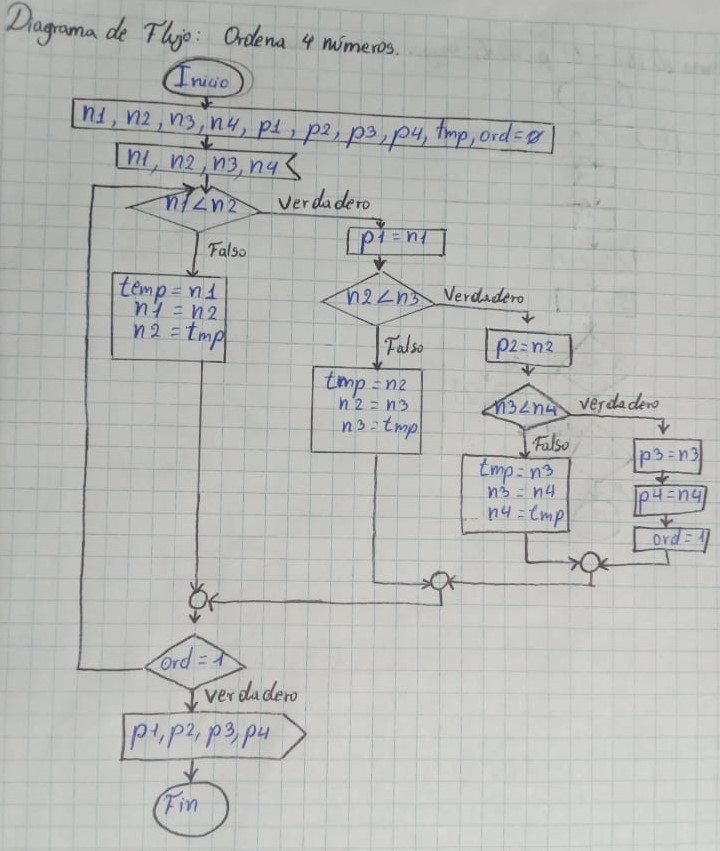 Diagrama de Flujo: Ordena 4 números.
Inicio
n1, n2, n3, n4, p1, p2, p3, p4, tmp, ord=0
n1, n2, n3, n4
n1<n2
Verdadero
Falso
p1=n1
temp=n1
n1=n2
n2=tmp
n2<n3
Verdadero
Falso
p2=n2
tmp=n2
n2=n3
n3=tmp
n3<n4
verdadero
Falso
p3=n3
p4=n4
ord=1
tmp=n3
n3=n4
n4=tmp
ord=1
Verdadero
p1, p2, p3, p4
Fin